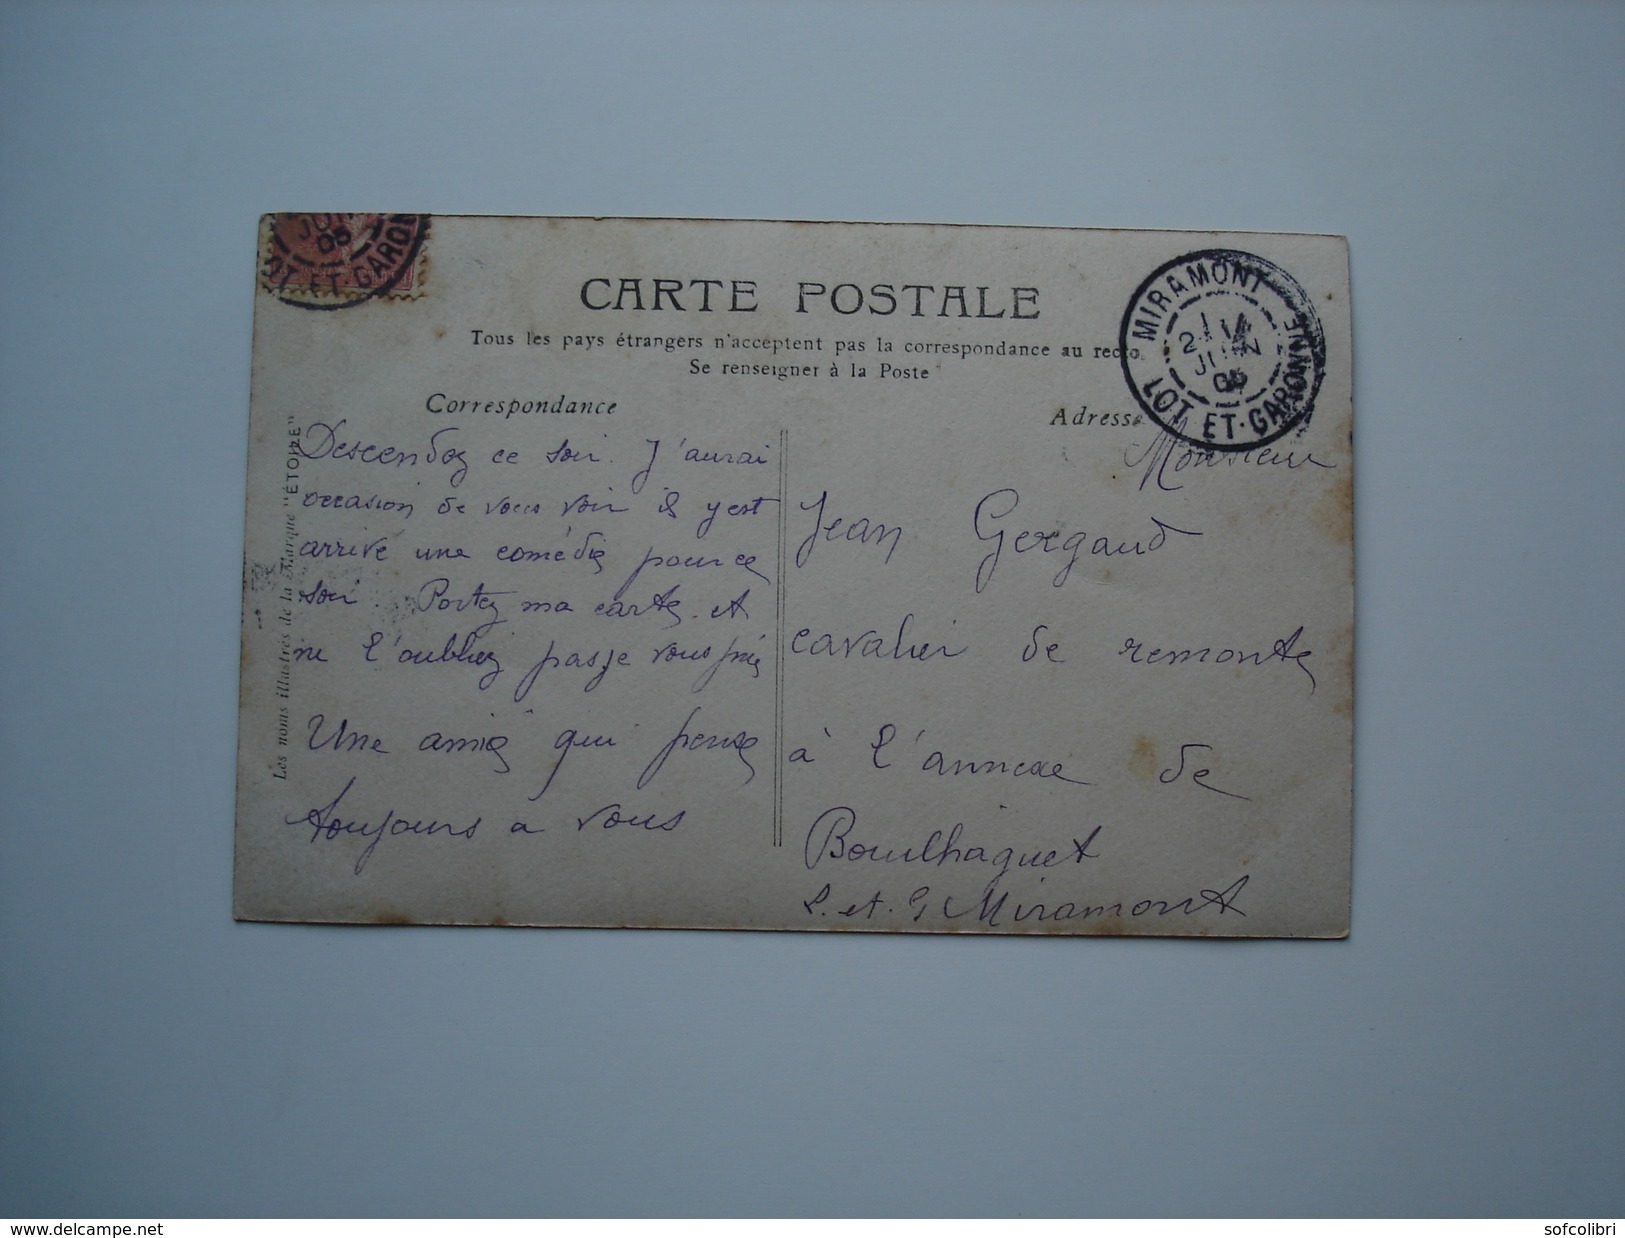 CARTE POSTALE
Tous les pays étrangers n'acceptent pas la correspondance au recto.
Se renseigner à la Poste
Correspondance
Descendez ce soir. J'aurai
occasion de vous voir il y est
arrivé une comédie pour ce
soir. Portez ma carte et
ne l'oubliez pas je vous prie
Une amie qui pense
toujours a vous
Adresse
Monsieur
Jean Gergaud
cavalier de remonte
à l'annexe de
Boulhaguet
L. et. G Miramont
MIRAMONT
JUIN
05
LOT ET-GARONNE
05
OT ET-GARON
Les noms illustrés de la Marque "ÉTOILE"
www.delcampe.net
sofcolibri